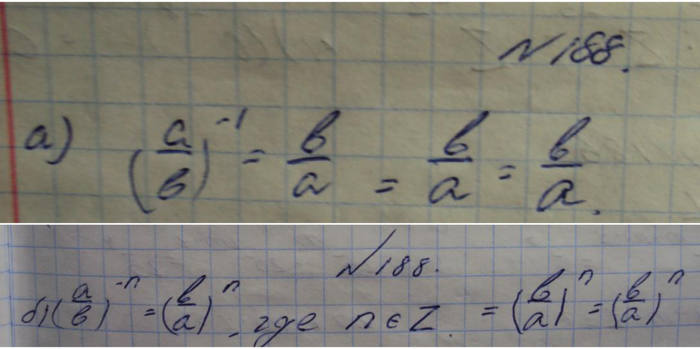 №188.
а) (a/b)^-1 = b/a = b/a = b/a.
№188.
б) (a/b)^-n = (b/a)^n, где n ∈ Z. = (b/a)^n = (b/a)^n